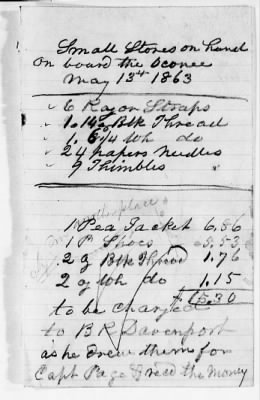 Small Stores on hand
on board the Oconee
May 13th 1863
6 Razor Straps
1. 14 Blk Thread
1. 6 3/4 Wh do
24 papers Needles
9 Thimbles
1 Pea Jacket 6,86
1 P Shoes 5.53
2 g Blk Thread 1.76
2 g Wh do 1.15
$15.30
to be charged
to B R Davenport
as he drew them for
Capt Page & recd the money